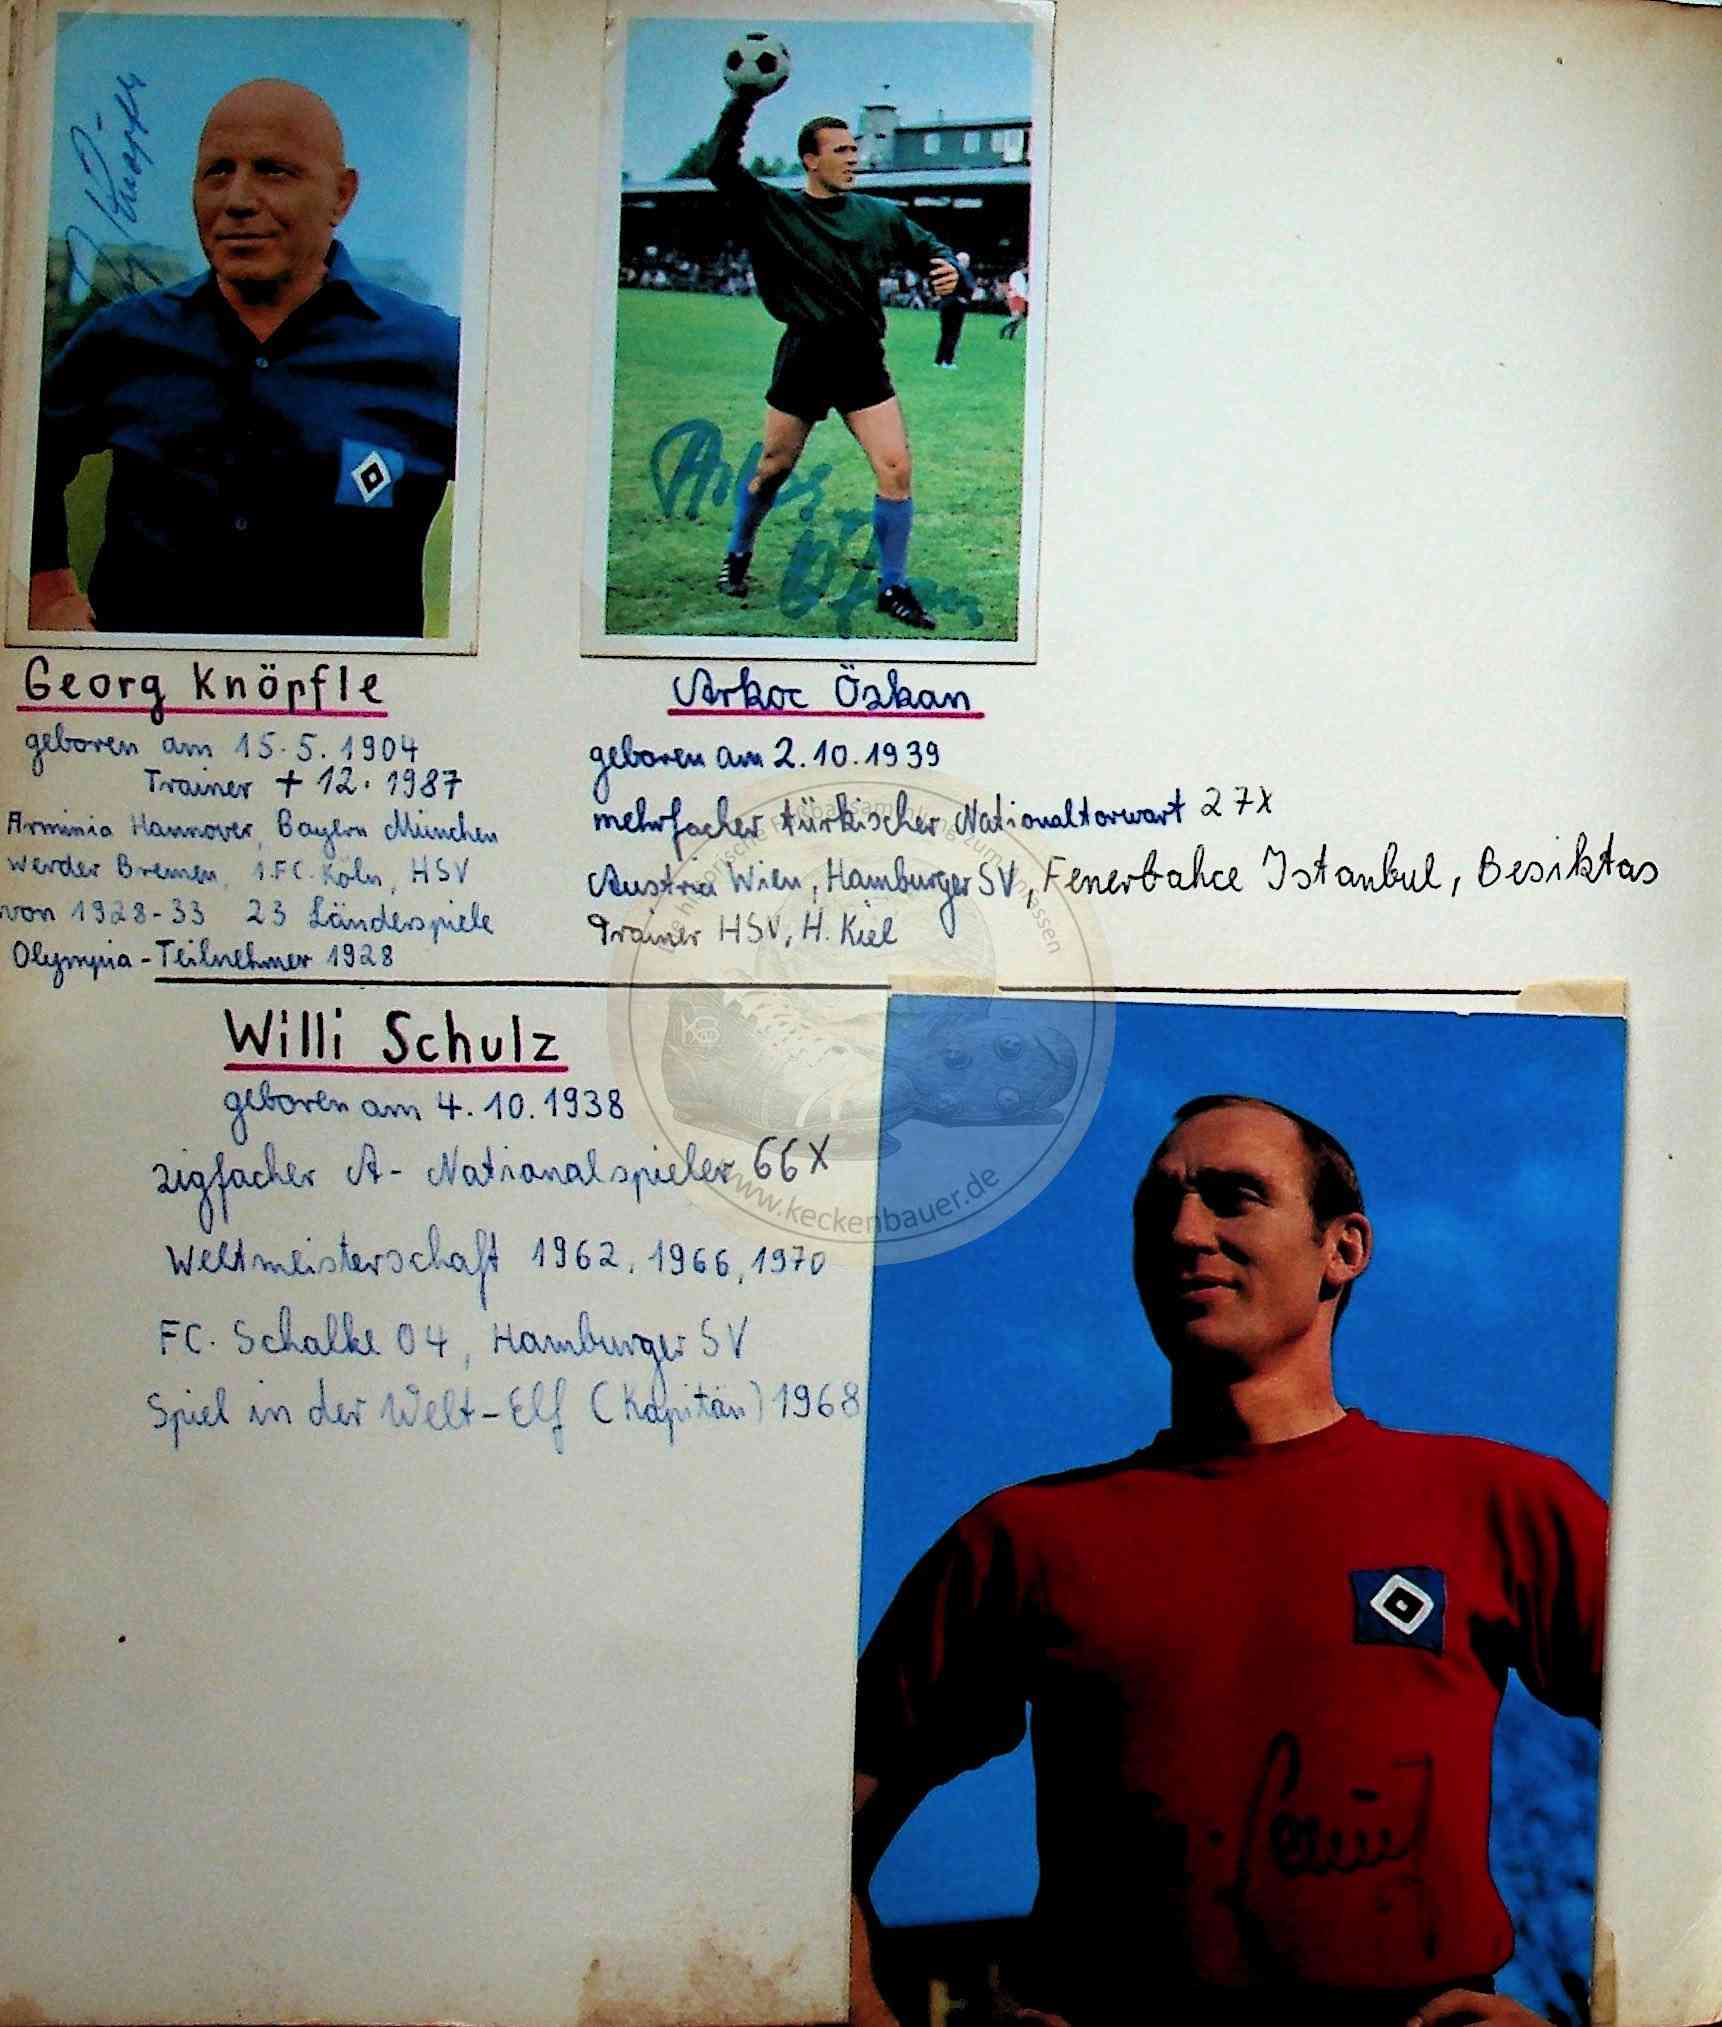 Georg Knöpfle
geboren am 15.5.1904
Trainer + 12.1987
Arminia Hannover, Bayern München
Werder Bremen, 1.FC. Köln, HSV
von 1928-33 23 Länderspiele
Olympia-Teilnehmer 1928
Arkoc Özkan
geboren am 2.10.1939
mehrfacher türkischer Nationaltorwart 27X
Austria Wien, Hamburger SV, Fenerbahce Istanbul, Besiktas
Trainer HSV, H. Kiel
Willi Schulz
geboren am 4.10.1938
zigfacher A-Nationalspieler 66X
Weltmeisterschaft 1962, 1966, 1970
FC. Schalke 04, Hamburger SV
Spiel in der Welt-Elf (Kapitän) 1968
www.keckenbauer.de